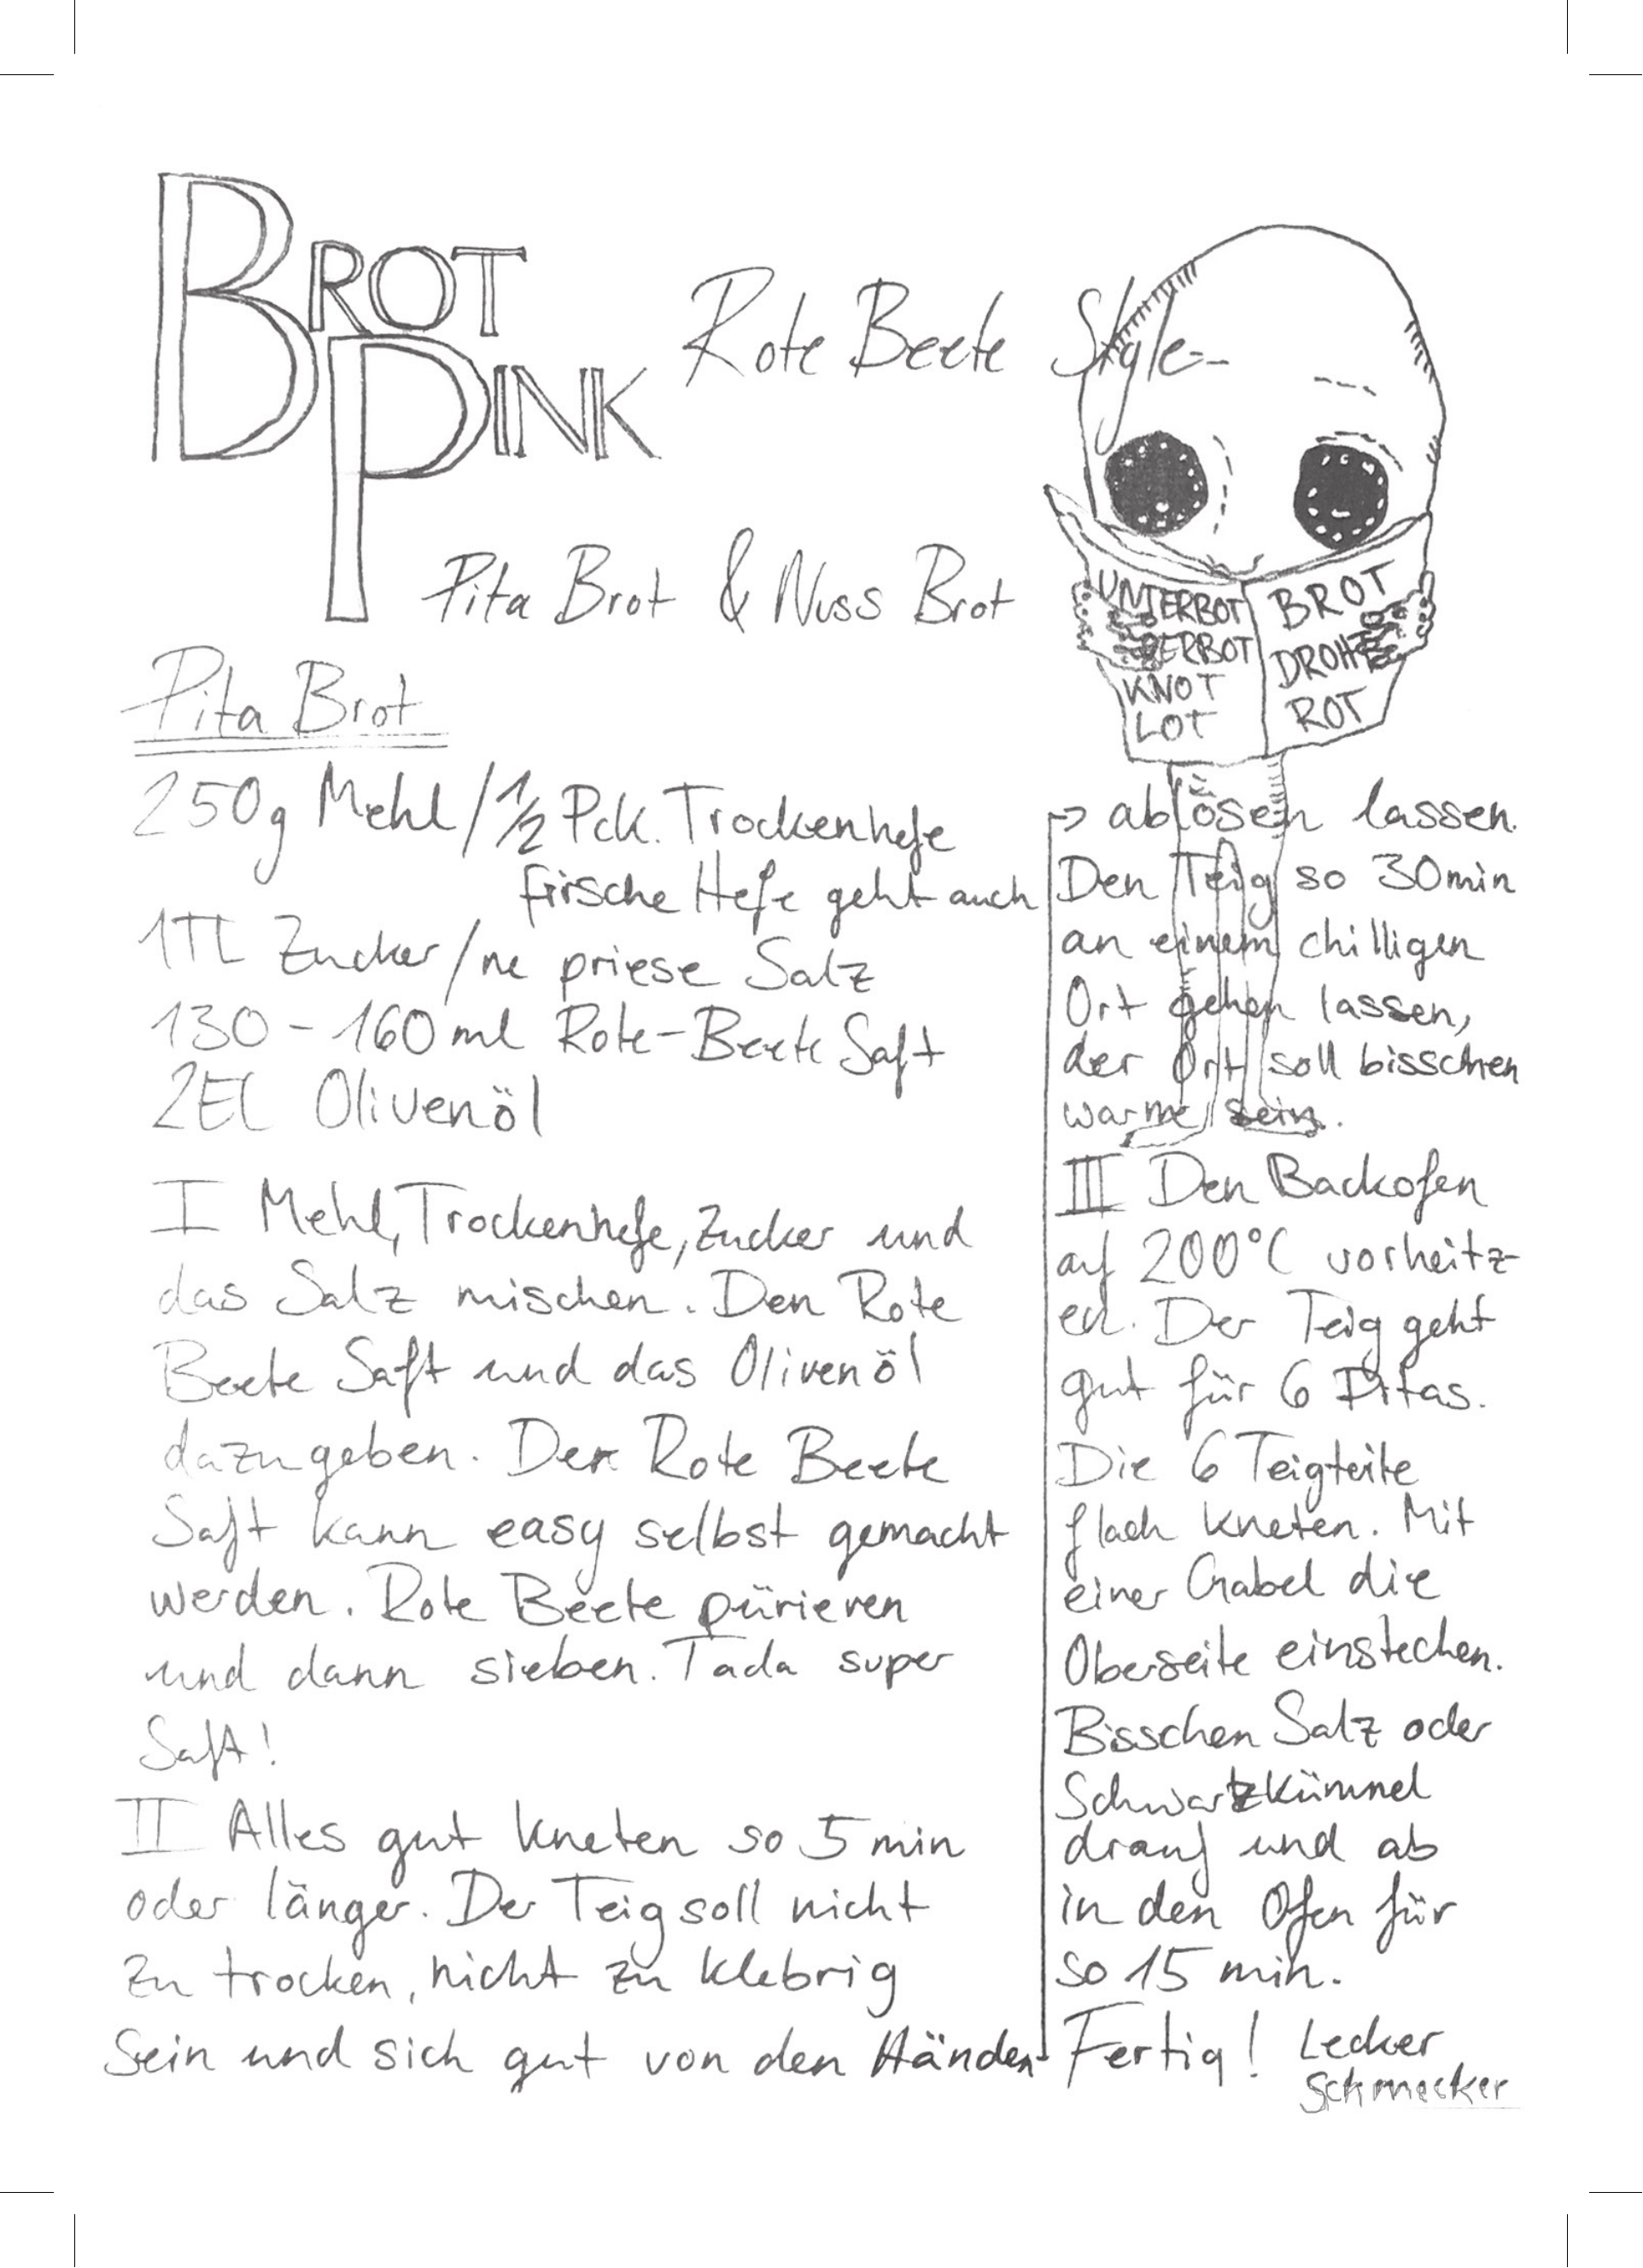 BROT
PINK
Rote Beete Style
Pita Brot & Nuss Brot
UNTERBOT
BROT
DROHT
KNOT
LOT
ROT
Pita Brot
250g Mehl / 1/2 Pck. Trockenhefe
frische Hefe geht auch
1TL Zucker / ne priese Salz
130 - 160 ml Rote-Beete Saft
2EL Olivenöl
I Mehl, Trockenhefe, Zucker und
das Salz mischen. Den Rote
Beete Saft und das Olivenöl
dazugeben. Der Rote Beete
Saft kann easy selbst gemacht
werden. Rote Beete pürieren
und dann sieben. Tada super
Saft!
II Alles gut kneten so 5 min
oder länger. Der Teig soll nicht
zu trocken, nicht zu klebrig
sein und sich gut von den Händen
→ ablösen lassen.
Den Teig so 30min
an einem chilligen
Ort gehen lassen,
der Ort soll bisschen
warme sein.
III Den Backofen
auf 200°C vorheitz-
en. Der Teig geht
gut für 6 Pitas.
Die 6 Teigteile
flach kneten. Mit
einer Gabel die
Oberseite einstechen.
Bisschen Salz oder
Schwartzkümmel
drauf und ab
in den Ofen für
so 15 min.
Fertig! Lecker
Schmecker